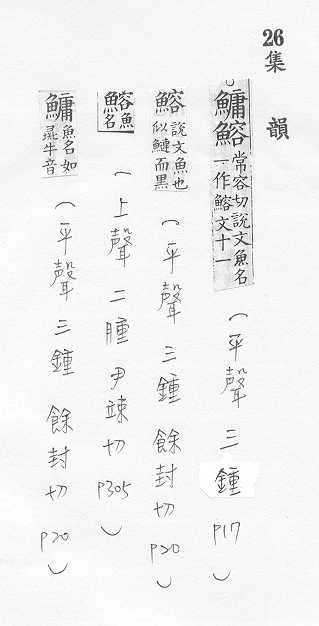 26
集韻
鱅鰫 常容切說文魚名一作鰫文十一 (平聲 三鍾 P17)
鰫 說文魚也似鰱而黑 (平聲 三鍾 餘封切 P20)
鰫 魚名 (上聲 二腫 尹竦切 P305)
鱅 魚名如犂牛音 (平聲 三鍾 餘封切 P20)